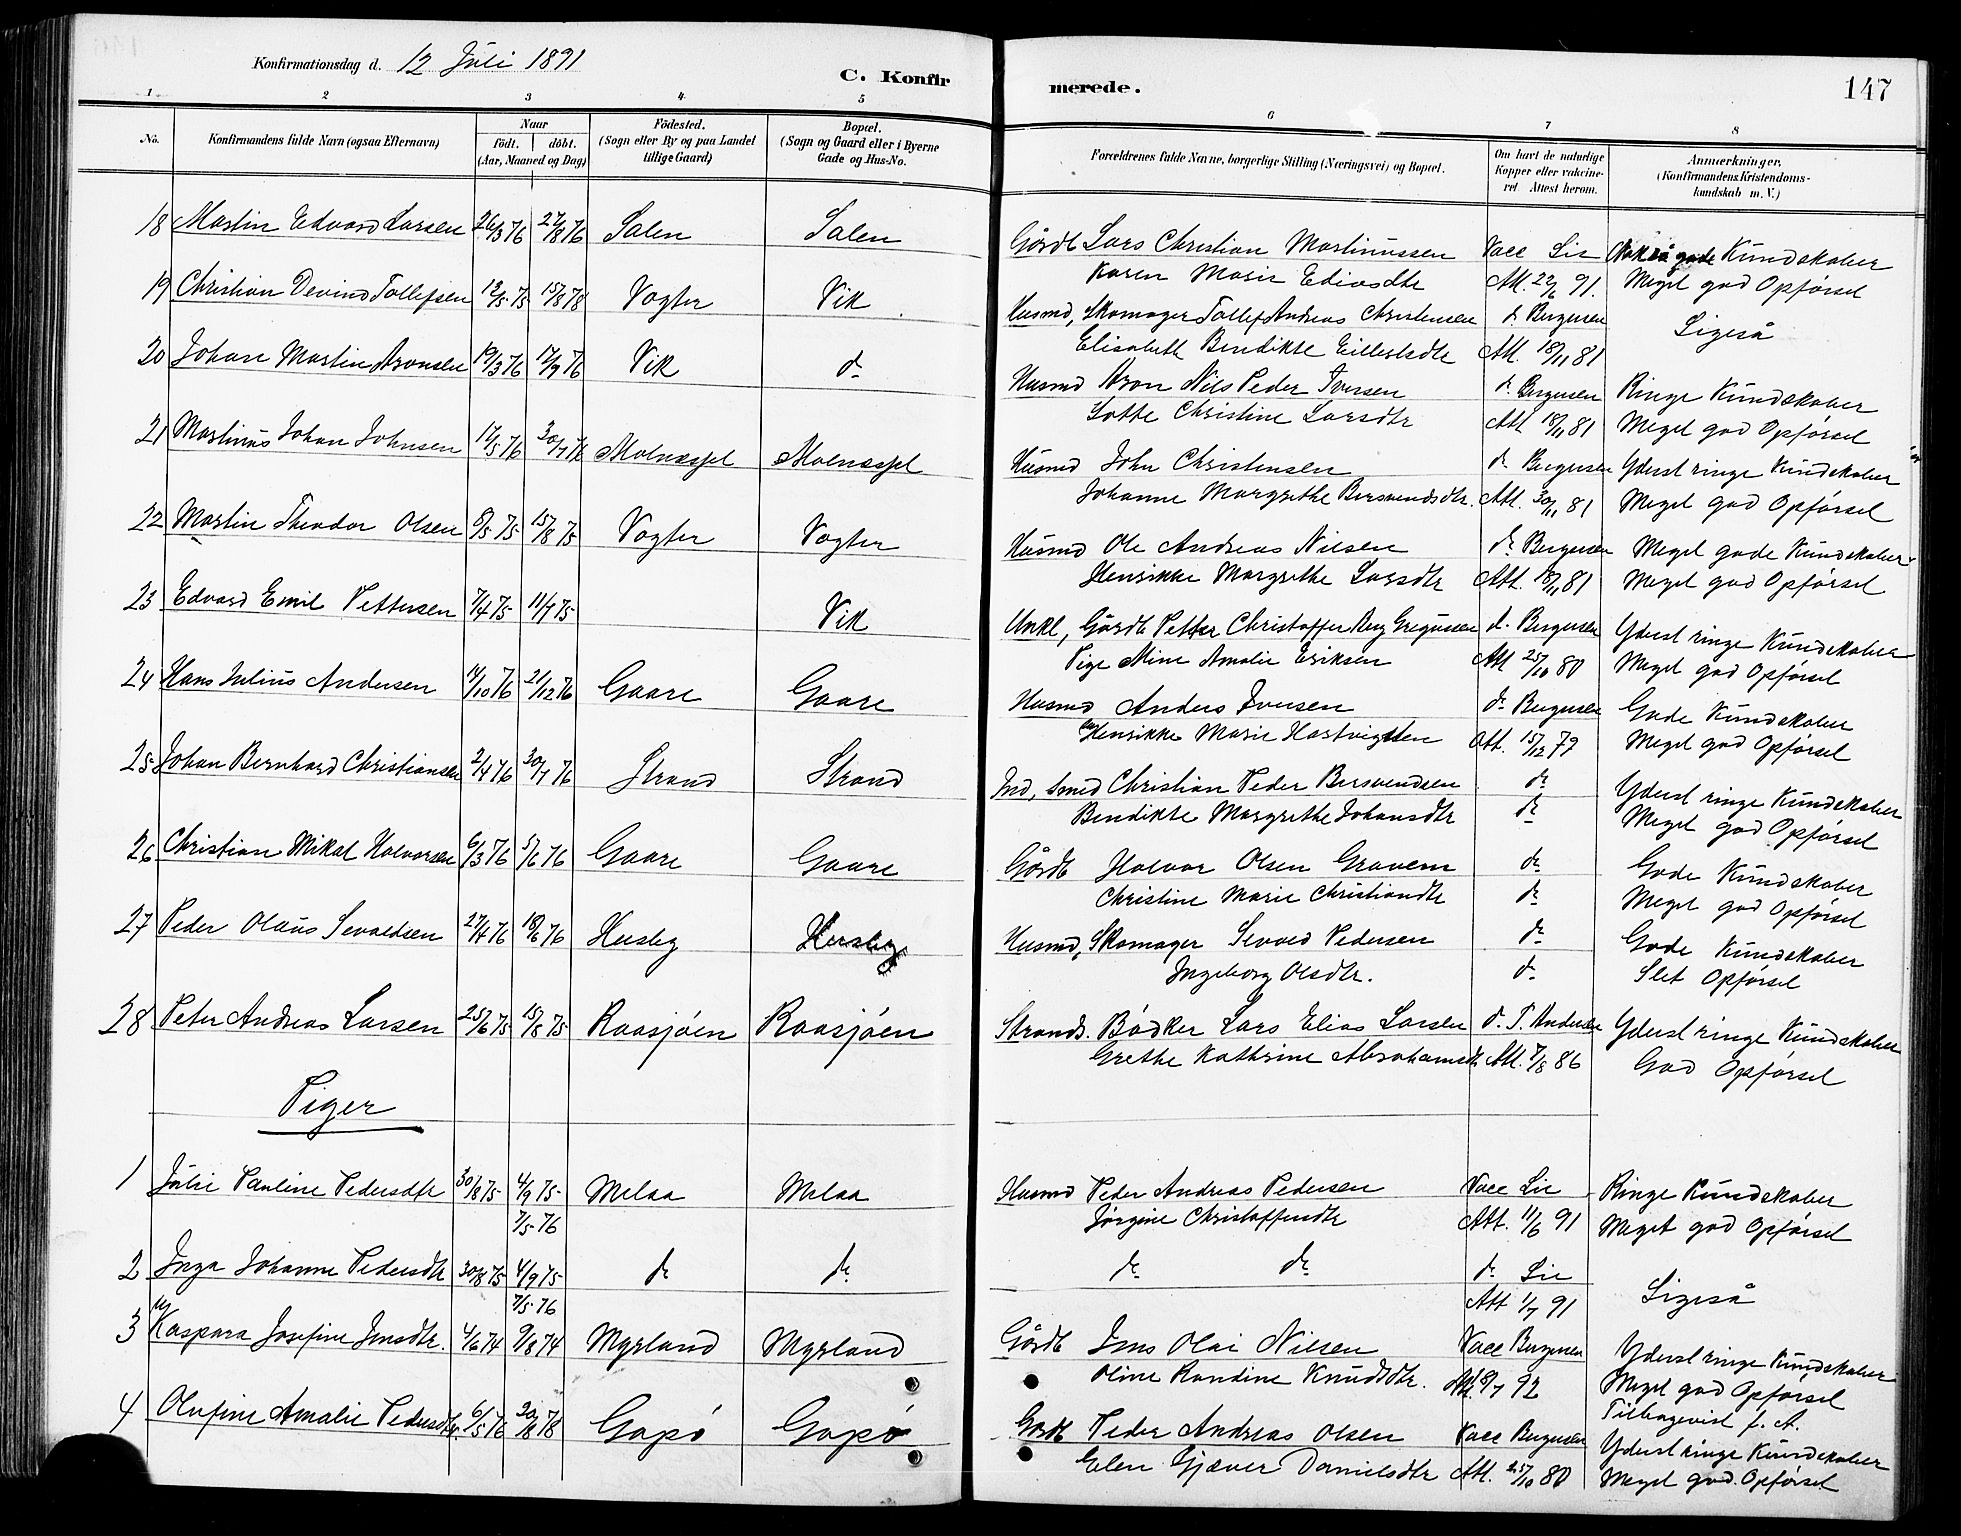 Konfirmationsdag d. 12 Juli 1891
C. Konfirmerede.
147
1 2 3 4 5 6 7 8
No.
Konfirmandens fulde Navn (ogsaa Efternavn)
Naar
födt. döbt.
(Aar, Maaned og Dag)
Födested.
(Sogn eller By og paa Landet
tillige Gaard)
Bopæl.
(Sogn og Gaard eller i Byerne
Gade og Hus-No.
Forældrenes fulde Navne, borgerlige Stilling (Næringsvei) og Bopæl.
Om havt de naturlige
Kopper eller vakcine-
ret Attest herom.
Anmærkninger.
(Konfirmandens Kristendoms-
kundskab m. V.)
18 Martin Edvard Larsen 26/3 76 27/8 76 Salen Salen Gårdb Lars Christian Martinussen Vacc Lie gode Kundskaber
Karen Marie Ediasdtr Att. 22/6 91. Meget god Opførsel
19 Christian Devind Tollefsen 12/5 75 15/8 75 Vogter Vik Husmd, Skomager Tollef Andreas Christensen d. Bergersen Ligeså
Elisabeth Bendikte Eillertsdtr Att. 18/11 81
20 Johan Martin Aronsen 19/3 76 17/9 76 Vik do Husmd Aron Nils Peder Iversen d. Bergersen Ringe Kundskaber
Lotte Christine Larsdtr Att 18/11 81 Meget god Opførsel
21 Martinus Johan Johnsen 17/5 76 30/7 76 Molnesjel Molnesjel Husmd John Christensen d. Bergersen Yderst ringe Kundskaber
Johanne Margrethe Bersvendsdtr. Att. 30/11 81 Meget god Opførsel
22 Martin Theodor Olsen 8/5 75 15/8 75 Vogter Vogter Husmd Ole Andreas Nilsen d. Bergersen Meget gode Kundskaber
Henrikke Margrethe Larsdtr Att. 18/11 81 Meget god Opførsel
23 Edvard Emil Pettersen 7/4 75 11/7 75 Vik Unkl, Gårdb Petter Christoffer Berg Gregusen d. Bergersen Yderst ringe Kundskaber
Pige Mine Amalie Eriksen Att 25/10 80 Meget god Opførsel
24 Hans Julius Andersen 14/10 76 21/12 76 Gaare Gaare Husmd Anders Iversen d. Bergersen Gode Kundskaber
Henrikke Marie Hartvigsen Att. 15/12 79 Meget god Opførsel
25 Johan Bernhard Christiansen 2/4 76 30/7 76 Strand Strand Ind, Smed Christian Peder Bersvendsen do Yderst ringe Kundskaber
Bendikte Margrethe Johansdtr do Meget god Opførsel
26 Christian Mikal Halvorsen 6/3 76 5/6 76 Gaare Gaare Gårdb Halvor Olsen Gravem do Gode Kundskaber
Christine Marie Christiandtr do Meget god Opførsel
27 Peder Olaus Sevaldsen 27/4 76 18/6 76 Husby Husby Husmd, Skomager Sevald Pedersen do Gode Kundskaber
Ingeborg Olsdtr. do Slet Opførsel
28 Peter Andreas Larsen 25/6 75 15/8 75 Raasjøen Raasjøen Strands. Bødker Lars Elias Larsen d. P. Andersen Yderst ringe Kundskaber
Grethe Kathrine Abrahamsdtr Att. 7/8 86 God Opførsel
Piger
1 Julie Pauline Pedersdtr 30/8 75 4/9 75 Melaa Melaa Husmd Peder Andreas Pedersen Vacc Lie Ringe Kundskaber
7/5 76 Jørgine Christoffersdtr Att. 11/6 91 Meget god Opførsel
2 Inga Johanne Pedersdtr 30/8 75 4/9 75 do do do do do Lie Ligeså
7/5 76 Att 1/7 91
3 Kaspara Josefine Jensdtr. 4/6 74 9/8 74 Myrland Myrland Gårdb Jens Olai Nilsen Vacc Bergersen Yderst ringe Kundskaber
Oline Randine Knudsdtr. Att. 8/7 92 Meget god Opførsel
Tilbagevist f. A.
4 Olufine Amalie Pedersdtr. 6/5 76 20/8 76 Gapø Gapø Gårdb Peder Andreas Olsen Vacc Bergersen Yderst ringe Kundskaber
Elen Gjæver Danielsdtr Att. 25/10 80 Meget god Opførsel